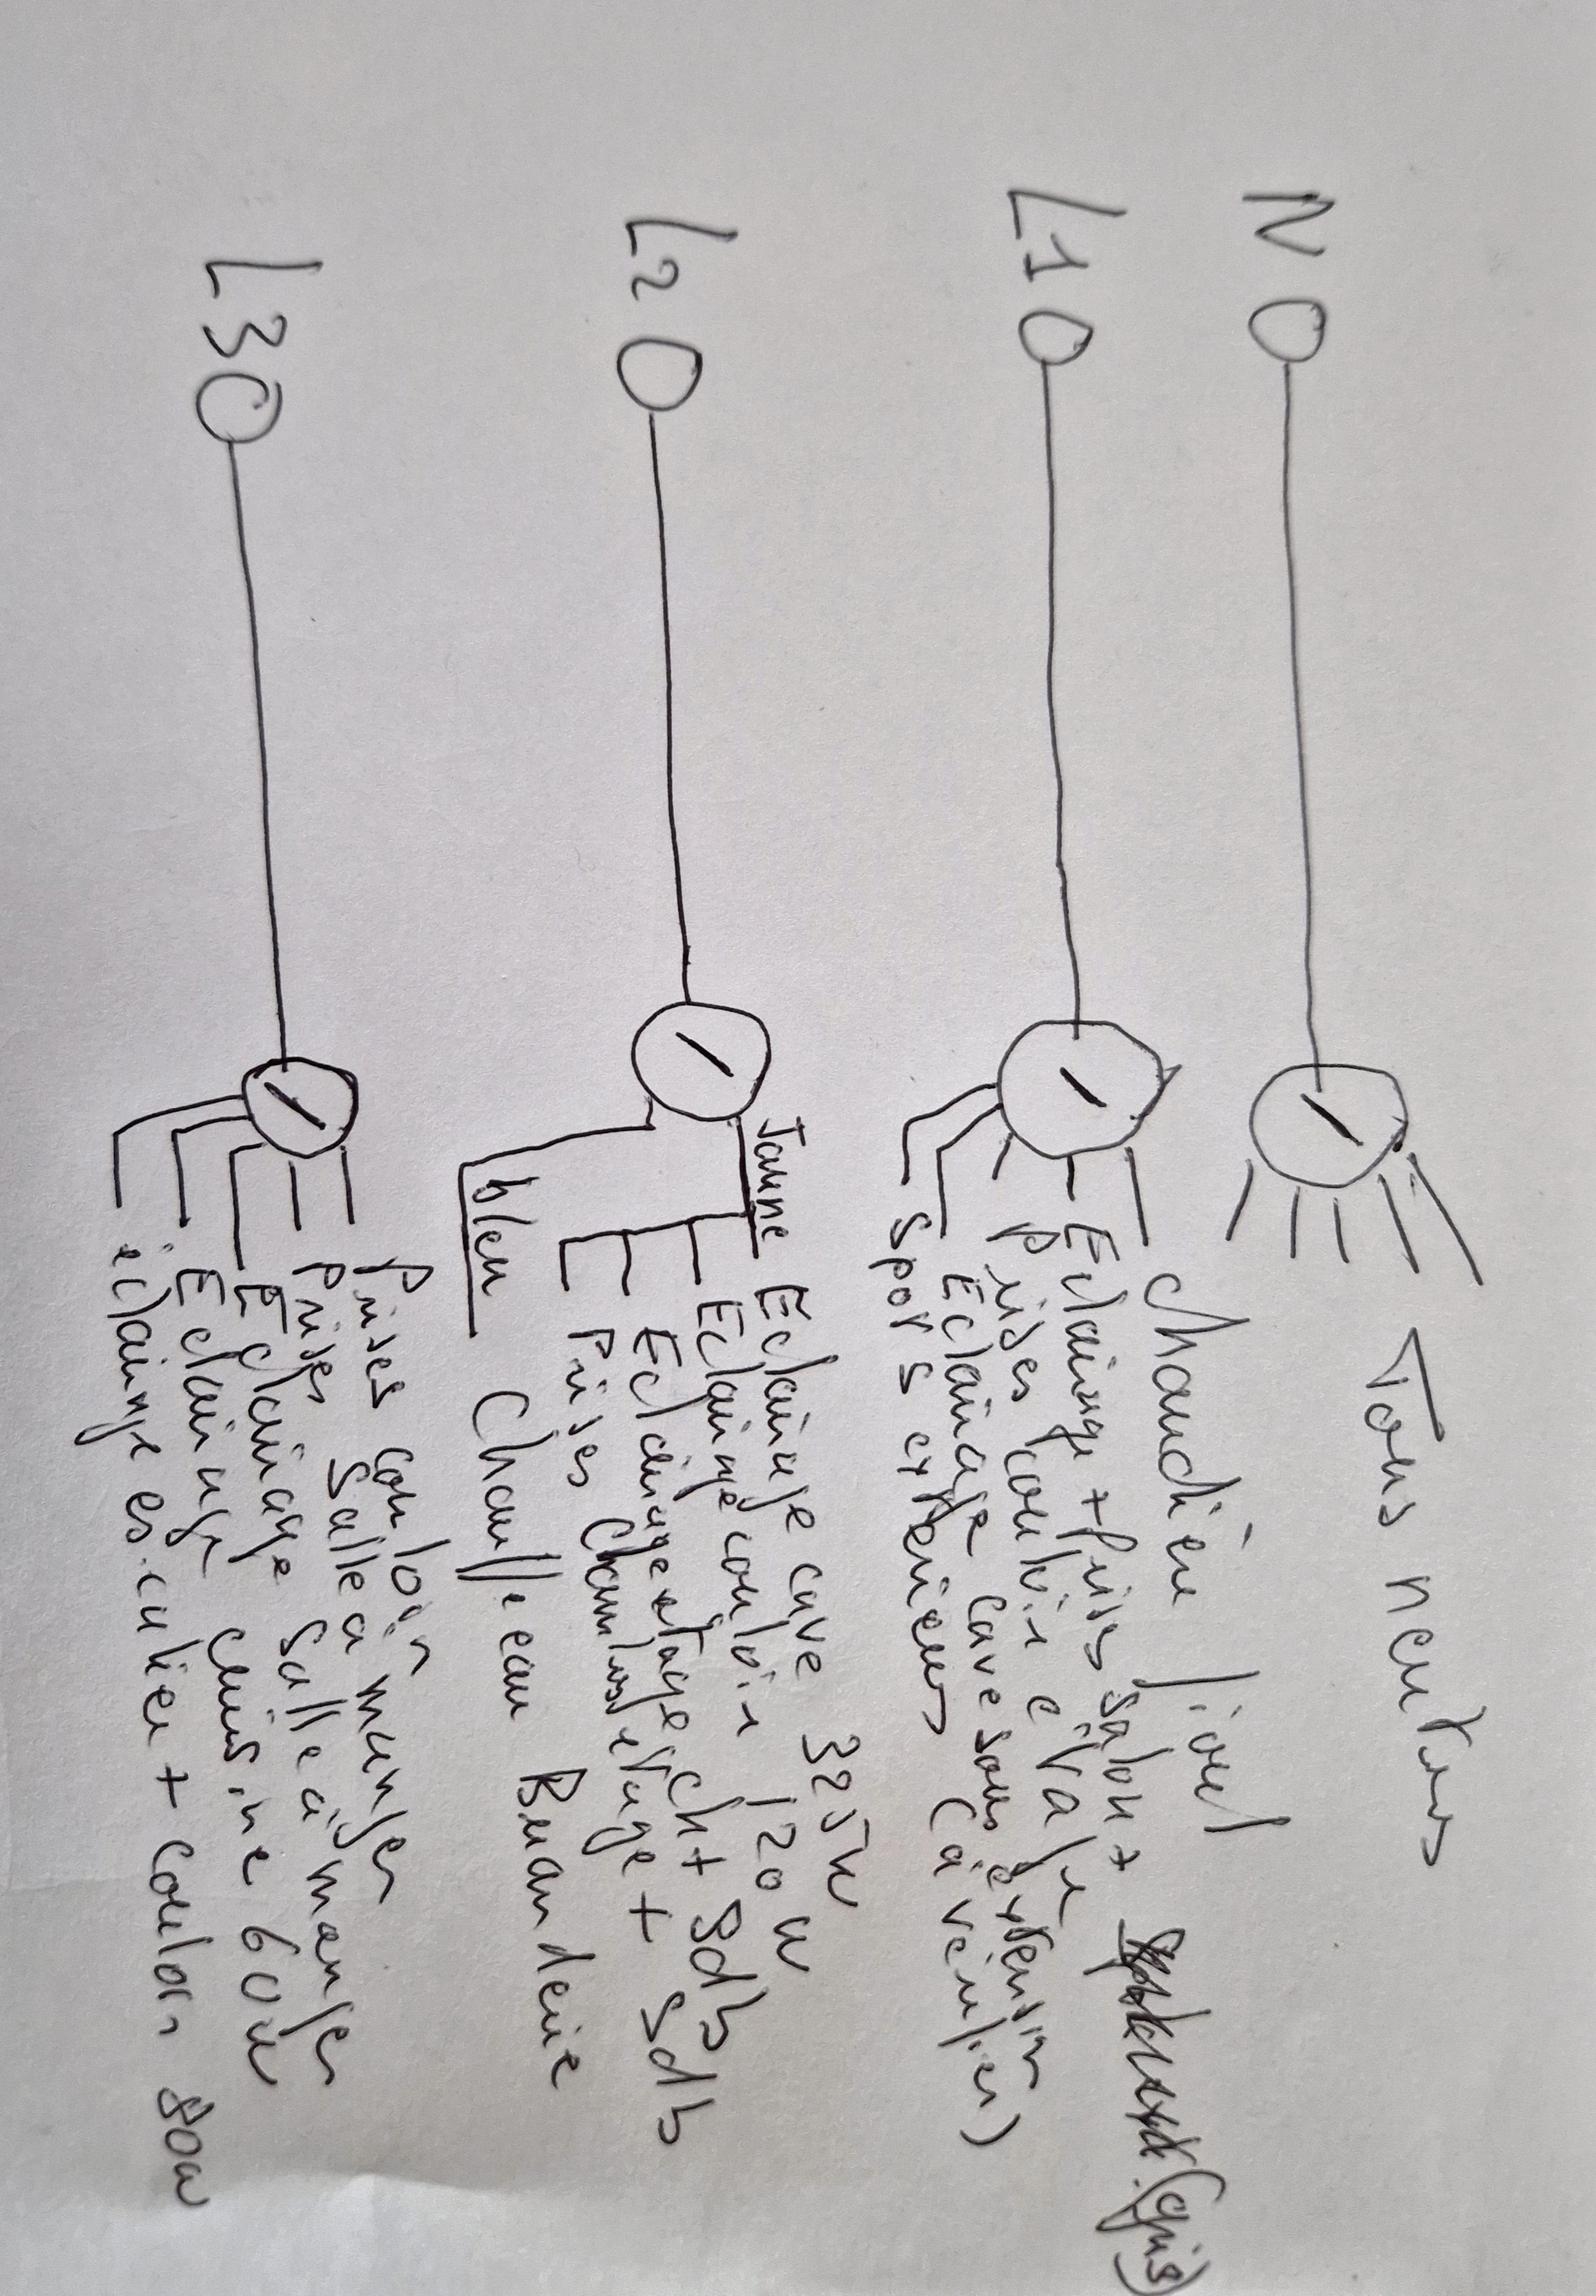 N Tous neutres
L1 chaudière fioul
Eclairage + prises salon + (gris)
Prises couloir etage
Eclairage cave sous extension
Spots extérieurs (à vérifier)
L2 Jaune Eclairage cave 325w
Eclairage couloir 120w
Eclairage etage ch + Sdb
Prises Chambres etage + Sdb
bleu Chauffe eau Buanderie
L3 Prises couloir
Prises salle a manger
Eclairage salle à manger
Eclairage cuisine 60w
éclairage escalier + couloir 80w